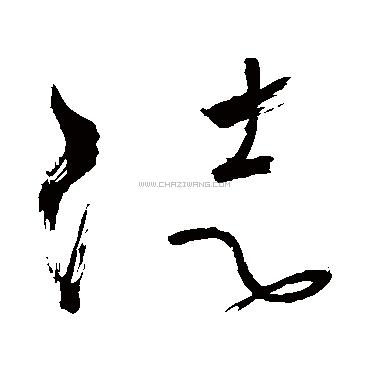 誌
WWW.CHAZIWANG.COM